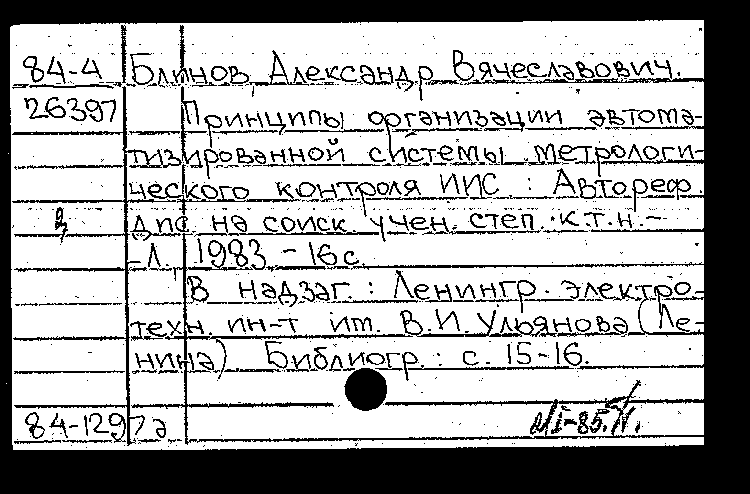 84-4 Блинов, Александр Вячеславович.
26397 Принципы организации автома-
тизированной системы метрологи-
ческого контроля ИИС : Автореф.
дис на соиск. учен. степ. к.т.н. -
- Л., 1983 - 16 с.
В надзаг. : Ленингр. электро-
техн. ин-т им. В.И. Ульянова (Ле-
нина) Библиогр. : с. 15-16.
84-1297а